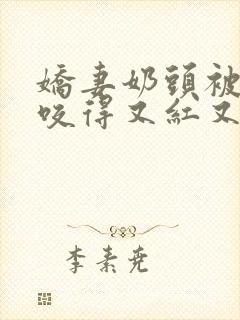 嬌妻奶頭被
咬得又紅又
李素堯